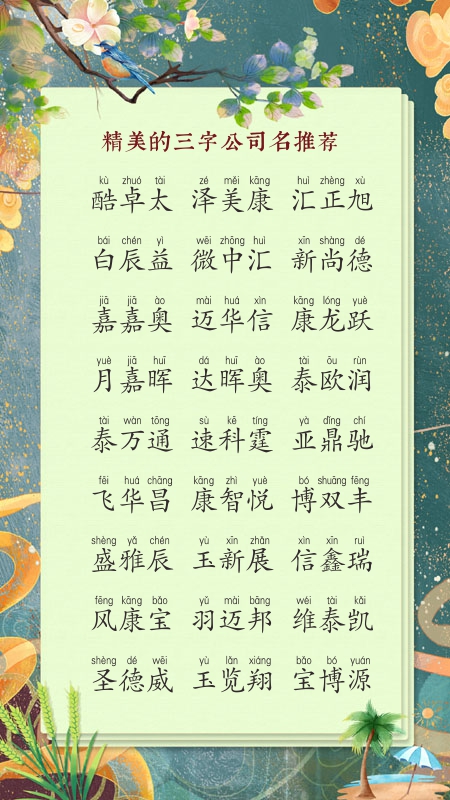 精美的三字公司名推荐
kù zhuó tài zé měi kāng huì zhèng xù
酷卓太 泽美康 汇正旭
bái chén yì wēi zhōng huì xīn shàng dé
白辰益 微中汇 新尚德
jiā jiā ào mài huá xìn kāng lóng yuè
嘉嘉奥 迈华信 康龙跃
yuè jiā huī dá huī ào tài ōu rùn
月嘉晖 达晖奥 泰欧润
tài wàn tōng sù kē tíng yà dǐng chí
泰万通 速科霆 亚鼎驰
fēi huá chāng kāng zhì yuè bó shuāng fēng
飞华昌 康智悦 博双丰
shèng yǎ chén yù xīn zhǎn xìn xīn ruì
盛雅辰 玉新展 信鑫瑞
fēng kāng bǎo yǔ mài bāng wéi tài kǎi
风康宝 羽迈邦 维泰凯
shèng dé wēi yù lǎn xiáng bǎo bó yuán
圣德威 玉览翔 宝博源